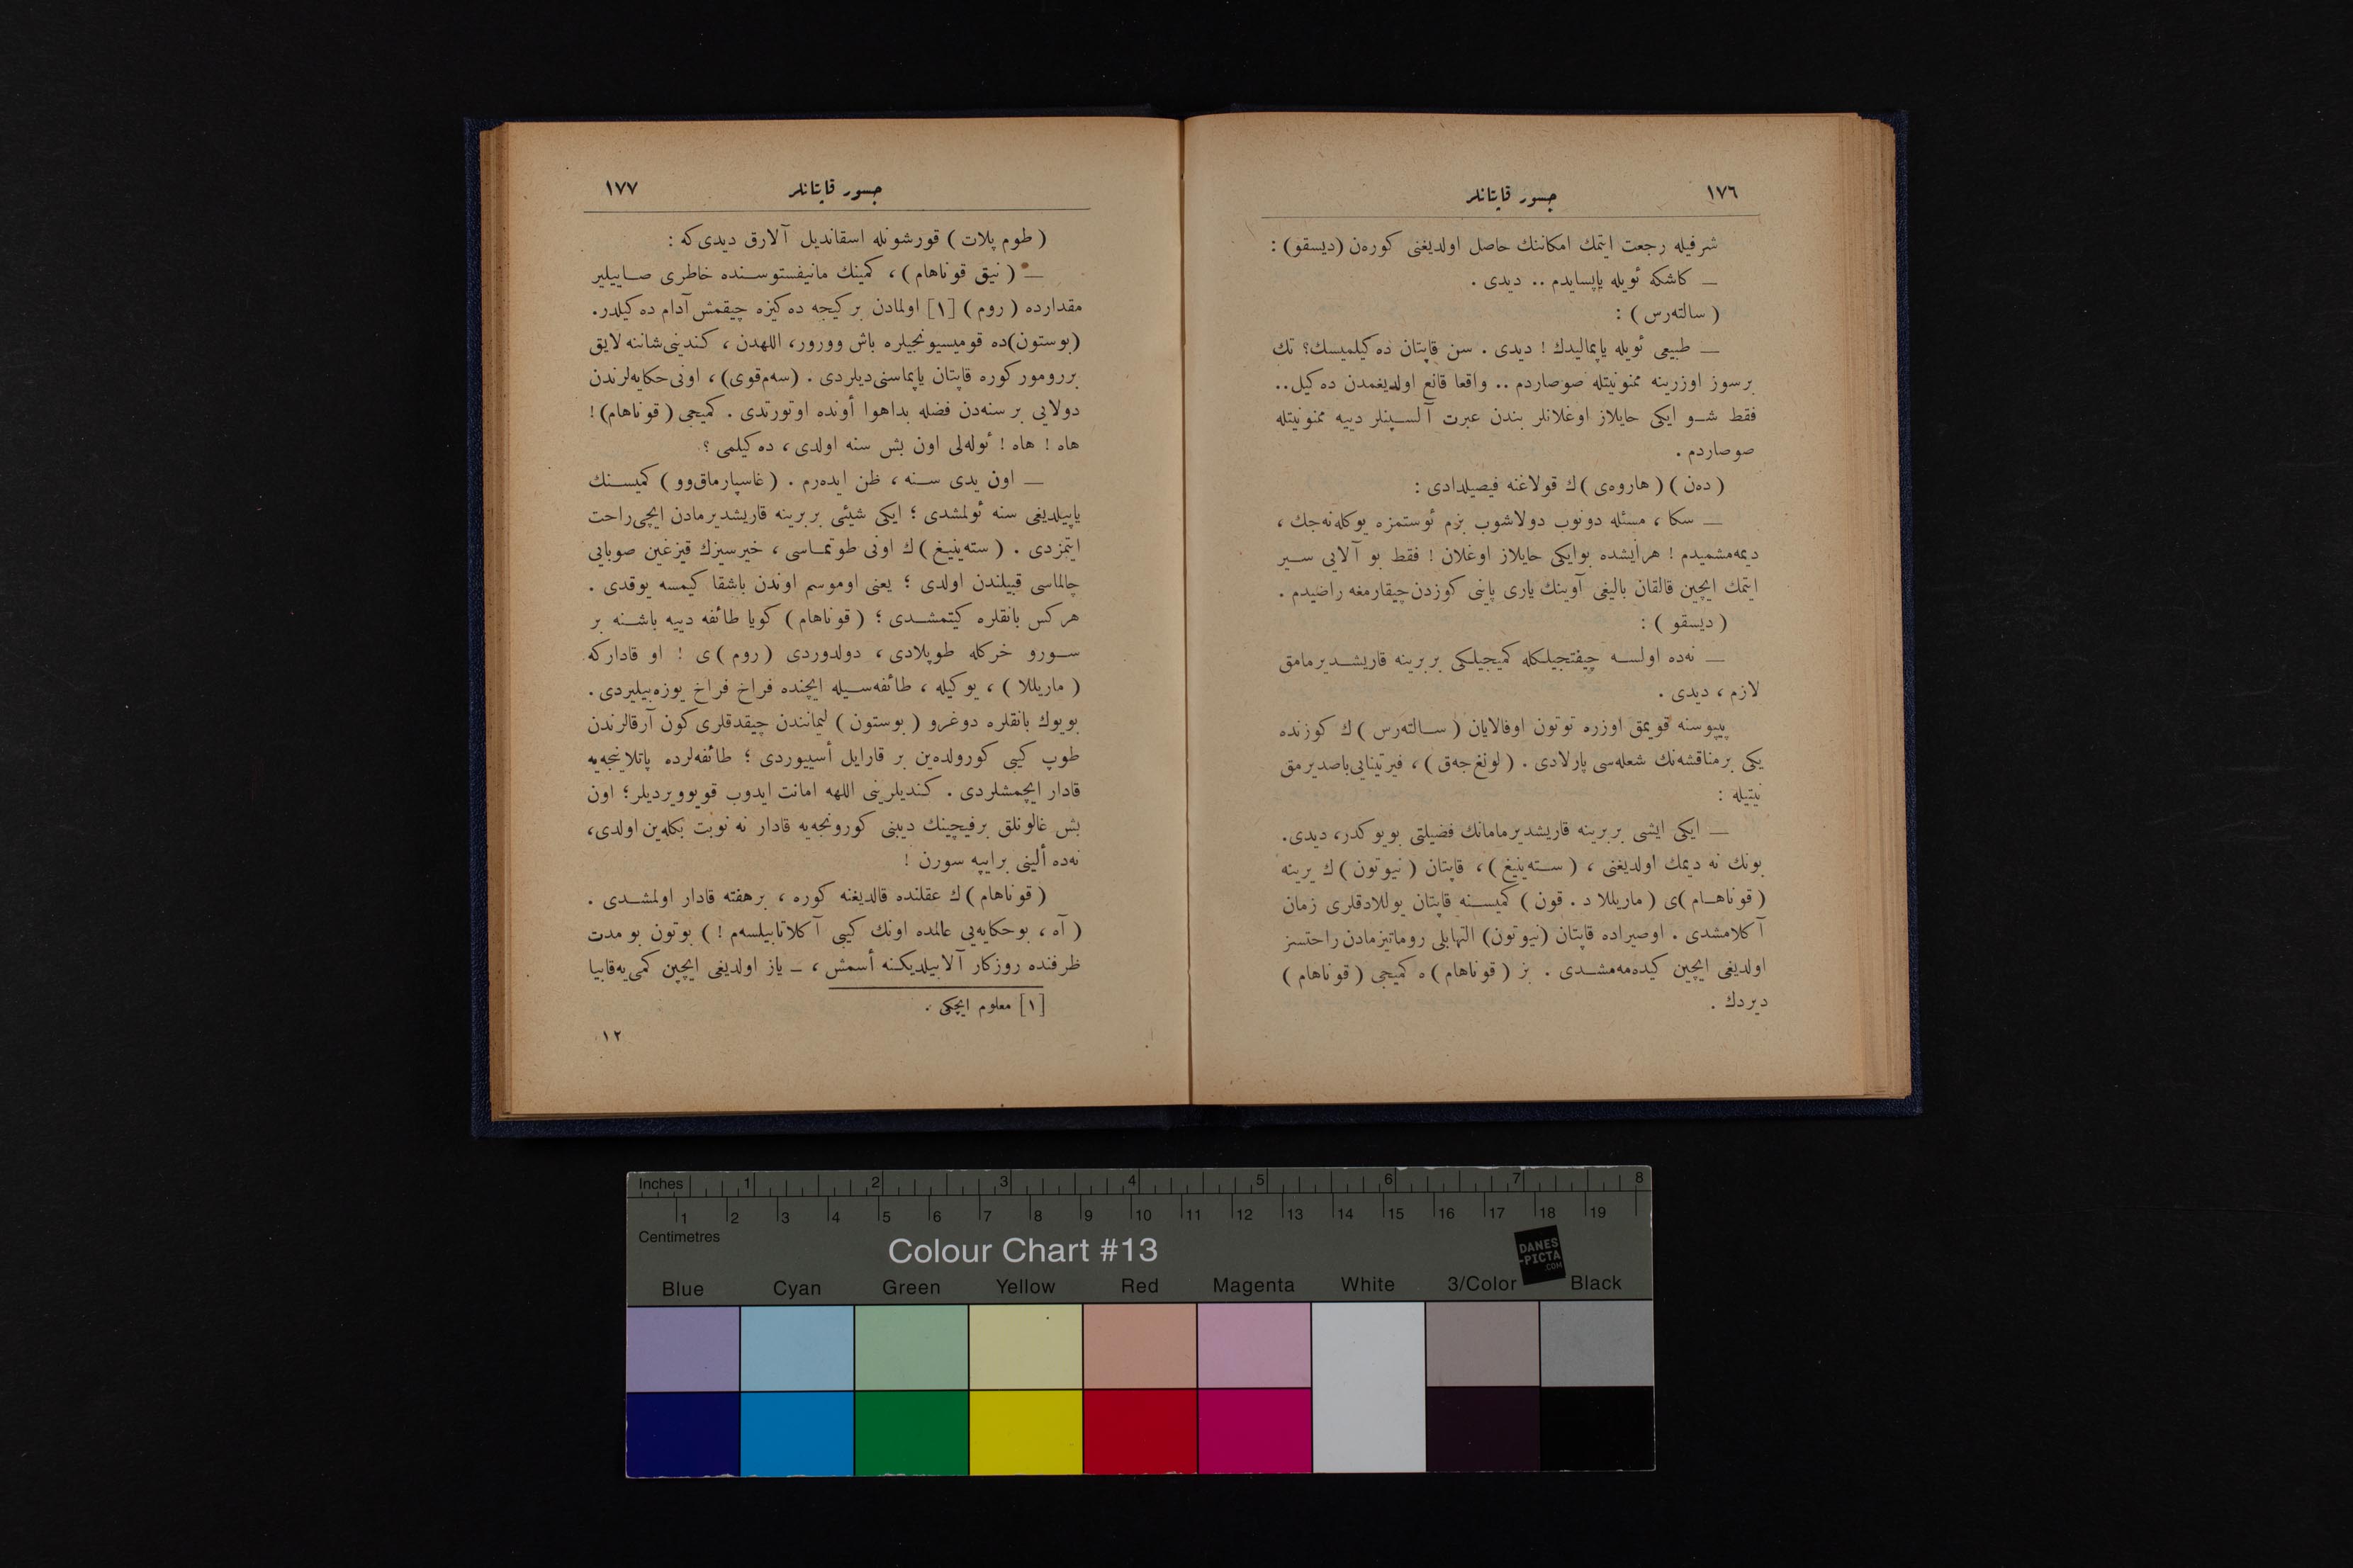 ١٧٦
جسور قاپتانلر
شرفيله رجعت ايتمك امكاننك حاصل اولديغنى كورەن (ديسقو) :
— كاشكه ئويله ياپسايدم .. ديدى .
( سالتەرس ) :
— طبيعى ئويله ياپماليدك ! ديدى . سن قاپتان دەكيلميسك؟ تك
برسوز اوزرينه ممنونيتله صوصاردم .. واقعا قانع اولديغمدن دەكيل..
فقط شو ايكى حايلاز اوغلانلر بندن عبرت آلسينلر دييه ممنونيتله
صوصاردم .
( دەن ) ( هاروەى )ك قولاغنه فيصيلدادى :
— سكا ، مسئله دونوب دولاشوب بزم ئوستمزە يوكلەنەجك ،
ديمەمشميدم ! هرايشده بوايكى حايلاز اوغلان ! فقط بو آلايى سير
ايتمك ايچين قالقان باليغى آوينك يارى پاينى كوزدن چيقارمغه راضيدم .
( ديسقو ) :
— نەدە اولسه چيفتجيلكله كميجيلكى بربرينه قاريشديرمامق
لازم ، ديدى .
پيپوسنه قويمق اوزره توتون اوفالايان ( سالتەرس )ك كوزنده
يكى برمناقشەنك شعلەسى پارلادى . ( لونغ جەق ) ، فيرتينايى باصديرمق
نيتيله :
— ايكى ايشى بربرينه قاريشديرمامانك فضيلتى بويوكدر، ديدى.
بونك نه ديمك اولديغنى ، ( ستەنينغ ) ، قاپتان ( نيوتون )ك يرينه
( قوناهام )ى ( ماريللا د . قون ) كميسنه قاپتان يوللادقلرى زمان
آكلامشدى . اوصيراده قاپتان (نيوتون) التهابلى روماتيزمادن راحتسز
اولديغى ايچين كيدەمەمشدى . بز ( قوناهام )ە كميجى ( قوناهام )
ديردك .
جسور قاپتانلر
١٧٧
( طوم پلات ) قورشونله اسقانديل آلارق ديدى كه :
— ( نيق قوناهام ) ، كمينك مانيفستوسنده خاطرى صاييلير
مقدارده ( روم ) [١] اولمادن بركيجه دەكيزە چيقمش آدام دەكيلدر.
(بوستون)دە قوميسيونجيلره باش وورور، اللهدن ، كندينى شاننه لايق
بررومور كوره قاپتان ياپماسنى ديلردى . (سەم قوى) ، اونى حكايەلرندن
دولايى بر سنەدن فضله بداهوا أوندە اوتورتدى . كميجى ( قوناهام) !
هاه ! هاه ! ئولەلى اون بش سنه اولدى ، دەكيلمى ؟
— اون يدى سنه ، ظن ايدەرم . ( غاسپارماق وو ) كميسنك
ياپيلديغى سنه ئولمشدى ؛ ايكى شيئى بربرينه قاريشديرمادن ايچى راحت
ايتمزدى . ( ستەنينغ )ك اونى طوتماسى ، خيرسيزك قيزغين صوبايى
چالماسى قبيلندن اولدى ؛ يعنى اوموسم اوندن باشقا كيمسه يوقدى .
هركس بانقلره كيتمشدى ؛ ( قوناهام ) كويا طائفه دييه باشنه بر
سورو خركله طوپلادى ، دولدوردى ( روم )ى ! او قاداركه
( ماريللا ) ، يوكيله ، طائفەسيله ايچنده فراخ فراخ يوزەبيليردى .
بويوك بانقلره دوغرو ( بوستون ) ليمانندن چيقدقلرى كون آرقالرندن
طوپ كيبى كورولدەين بر قارايل أسييوردى ؛ طائفەلرده پاتلاينجەيه
قادار ايچمشلردى . كنديلرينى اللهه امانت ايدوب قويوويرديلر؛ اون
بش غالونلق برفيچينك ديبنى كورونجەيه قادار نه نوبت بكلەين اولدى،
نەدە ألينى براييه سورن !
( قوناهام )ك عقلنده قالديغنه كوره ، برهفته قادار اولمشدى .
( آه ، بوحكايەيى عالمده اونك كيبى آكلاتابيلسەم ! ) بوتون بو مدت
ظرفنده روزكار آلابيلديكنه أسمش ، — ياز اولديغى ايچين كمى يەقابيا
[١] معلوم ايچكى .
١٢
Inches 1 2 3 4 5 6 7 8
1 2 3 4 5 6 7 8 9 10 11 12 13 14 15 16 17 18 19
Centimetres
Colour Chart #13
DANES
-PICTA
.COM
Blue Cyan Green Yellow Red Magenta White 3/Color Black